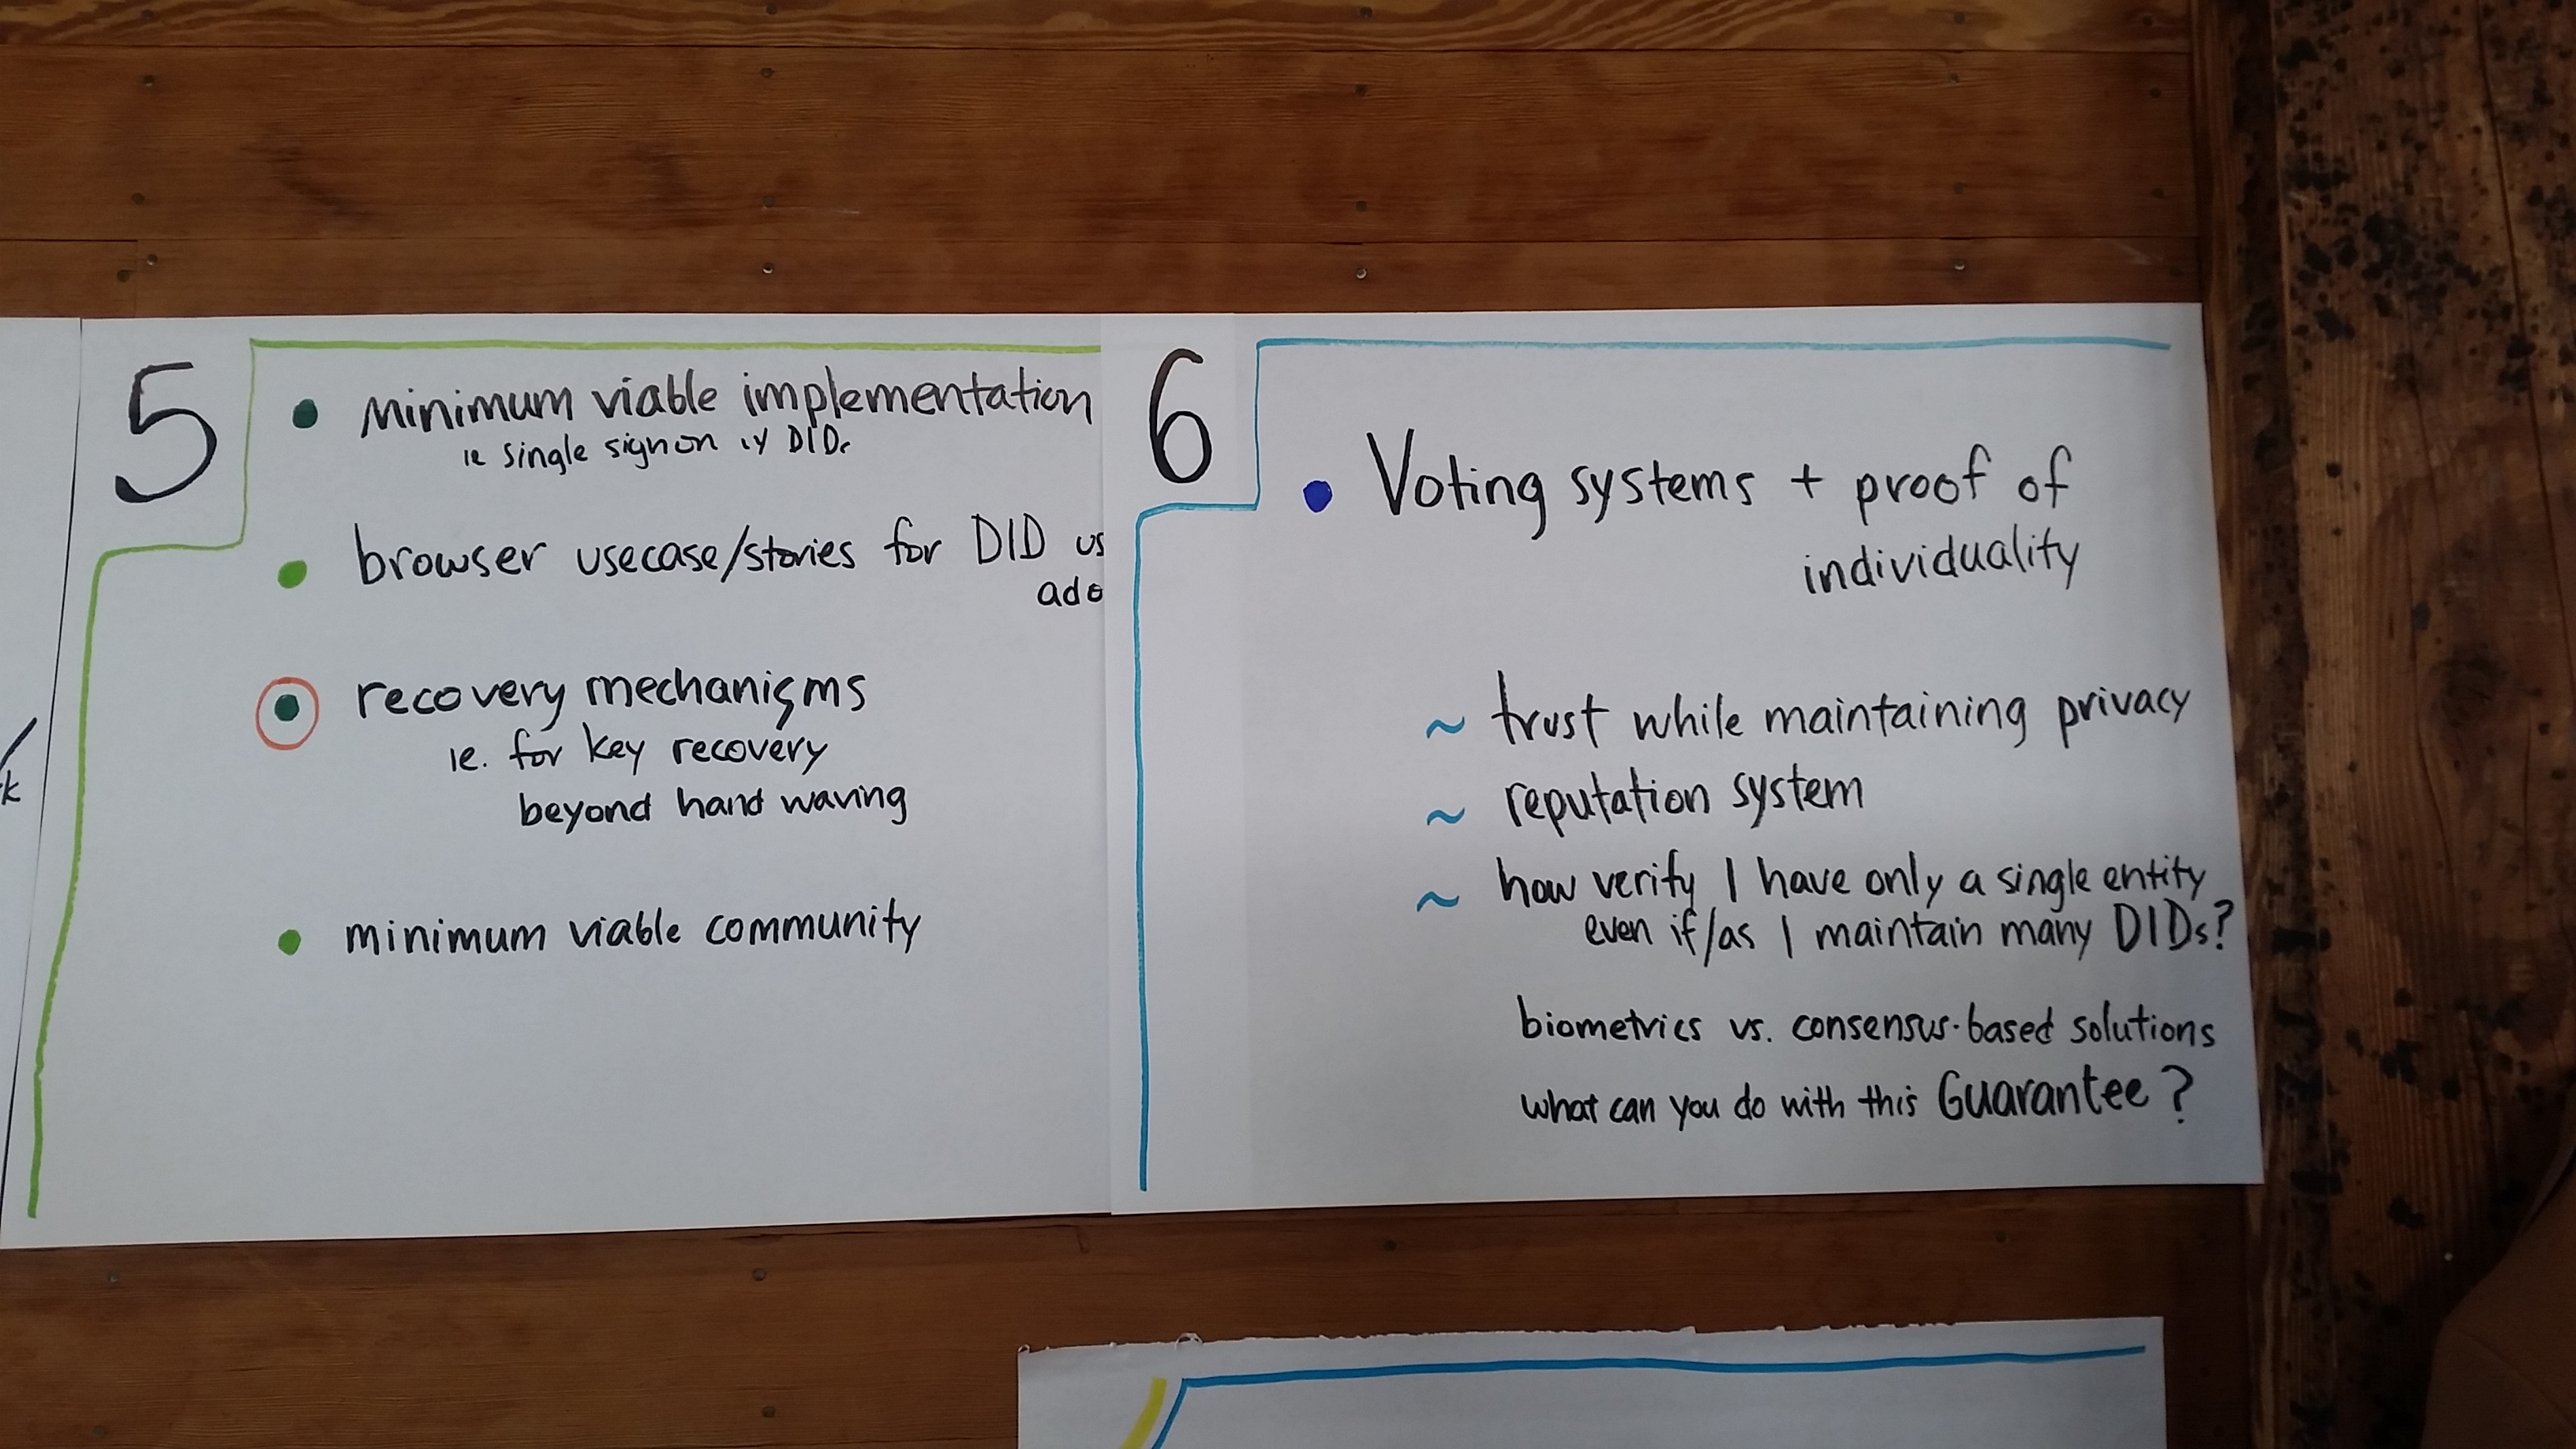 5
minimum viable implementation
ie single sign on w DIDs
browser usecase/stories for DID us
ado
recovery mechanisms
ie. for key recovery
beyond hand waving
minimum viable community
6
Voting systems + proof of
individuality
~ trust while maintaining privacy
~ reputation system
~ how verify I have only a single entity
even if/as I maintain many DIDs?
biometrics vs. consensus-based solutions
what can you do with this Guarantee?
k